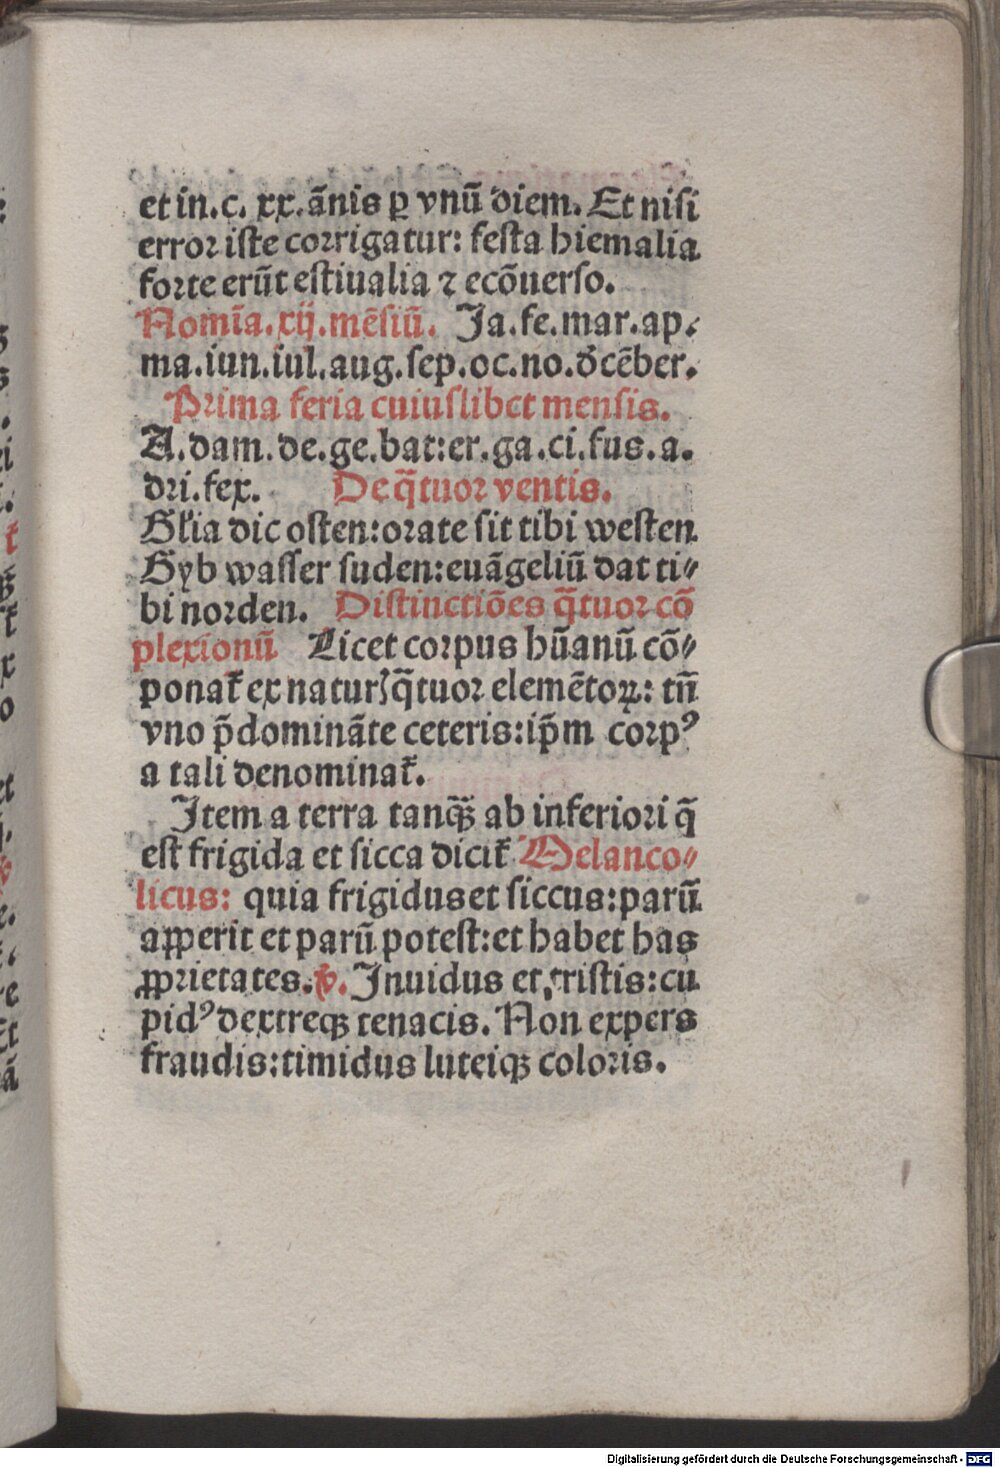 et in.c. xx.ãnis ꝑ vnũ diem. Et nisi
error iste corrigatur: festa hiemalia
forte erũt estiualia ⁊ ecõuerso.
Nomĩa.xij.mẽsiũ. Ja.fe.mar.ap.
ma.iun.iul.aug.sep.oc.no.dẽcẽber.
Prima feria cuiuslibet mensis.
A.dam.de.ge.bat:er.ga.ci.fus.a.
dri.fex. De q̃tuor ventis.
Gl'ia dic osten:orate sit tibi westen
Gyb wasser suden:euãgeliũ dat ti-
bi norden. Distinctiões q̃tuor cõ
plexionũ Licet corpus hũanũ cõ-
ponat̃ ex natur̃ q̃tuor elemẽtoꝝ: tñ
vno p̃dominãte ceteris:ip̃m corpꝰ
a tali denominat̃.
Item a terra tanqꝫ̃ ab inferiori q̃
est frigida et sicca dicit̃ Melanco-
licus: quia frigidus et siccus:parũ
apꝑerit et parũ potest:et habet has
ꝓprietates. v̊. Inuidus et tristis:cu
pidꝰ dextreqꝫ tenacis. Non expers
fraudis:timidus luteiqꝫ coloris.
Digitalisierung gefördert durch die Deutsche Forschungsgemeinschaft - DFG